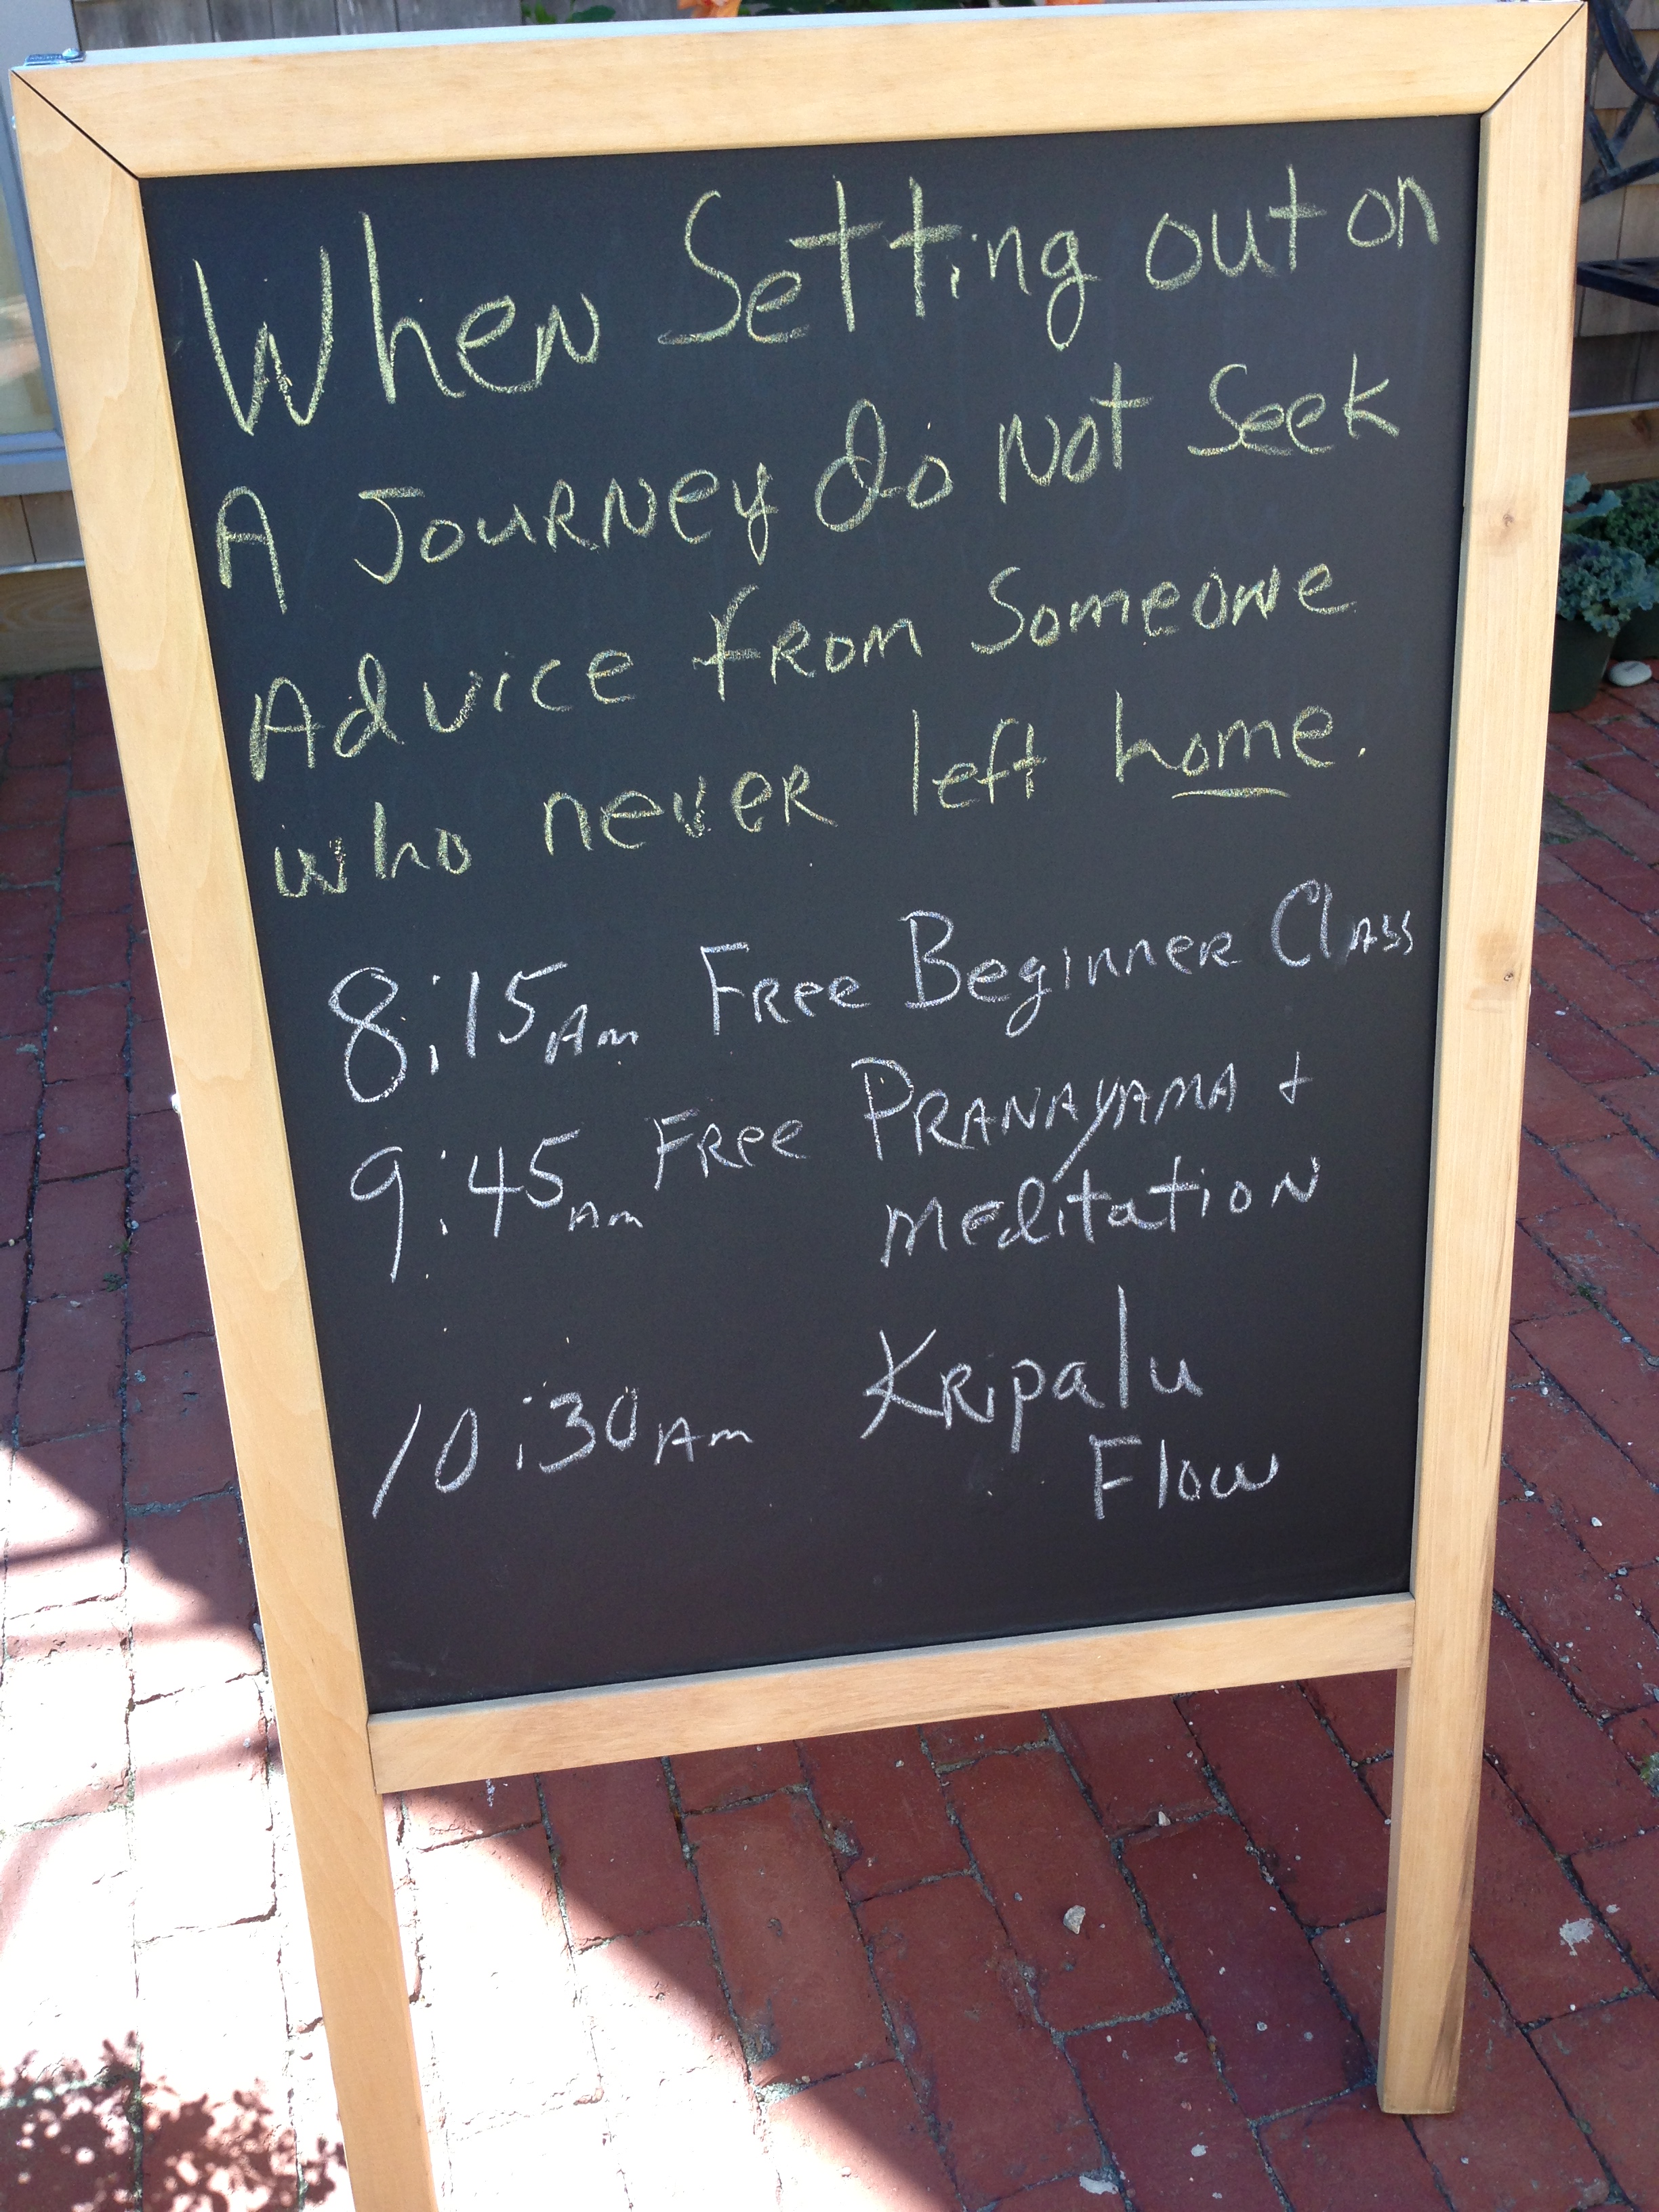 When Setting out on
A Journey do Not Seek
Advice from Someone
who never left home.
8:15 Am Free Beginner Class
9:45 Am Free PRANAYAMA +
Meditation
10:30 Am Kripalu
Flow